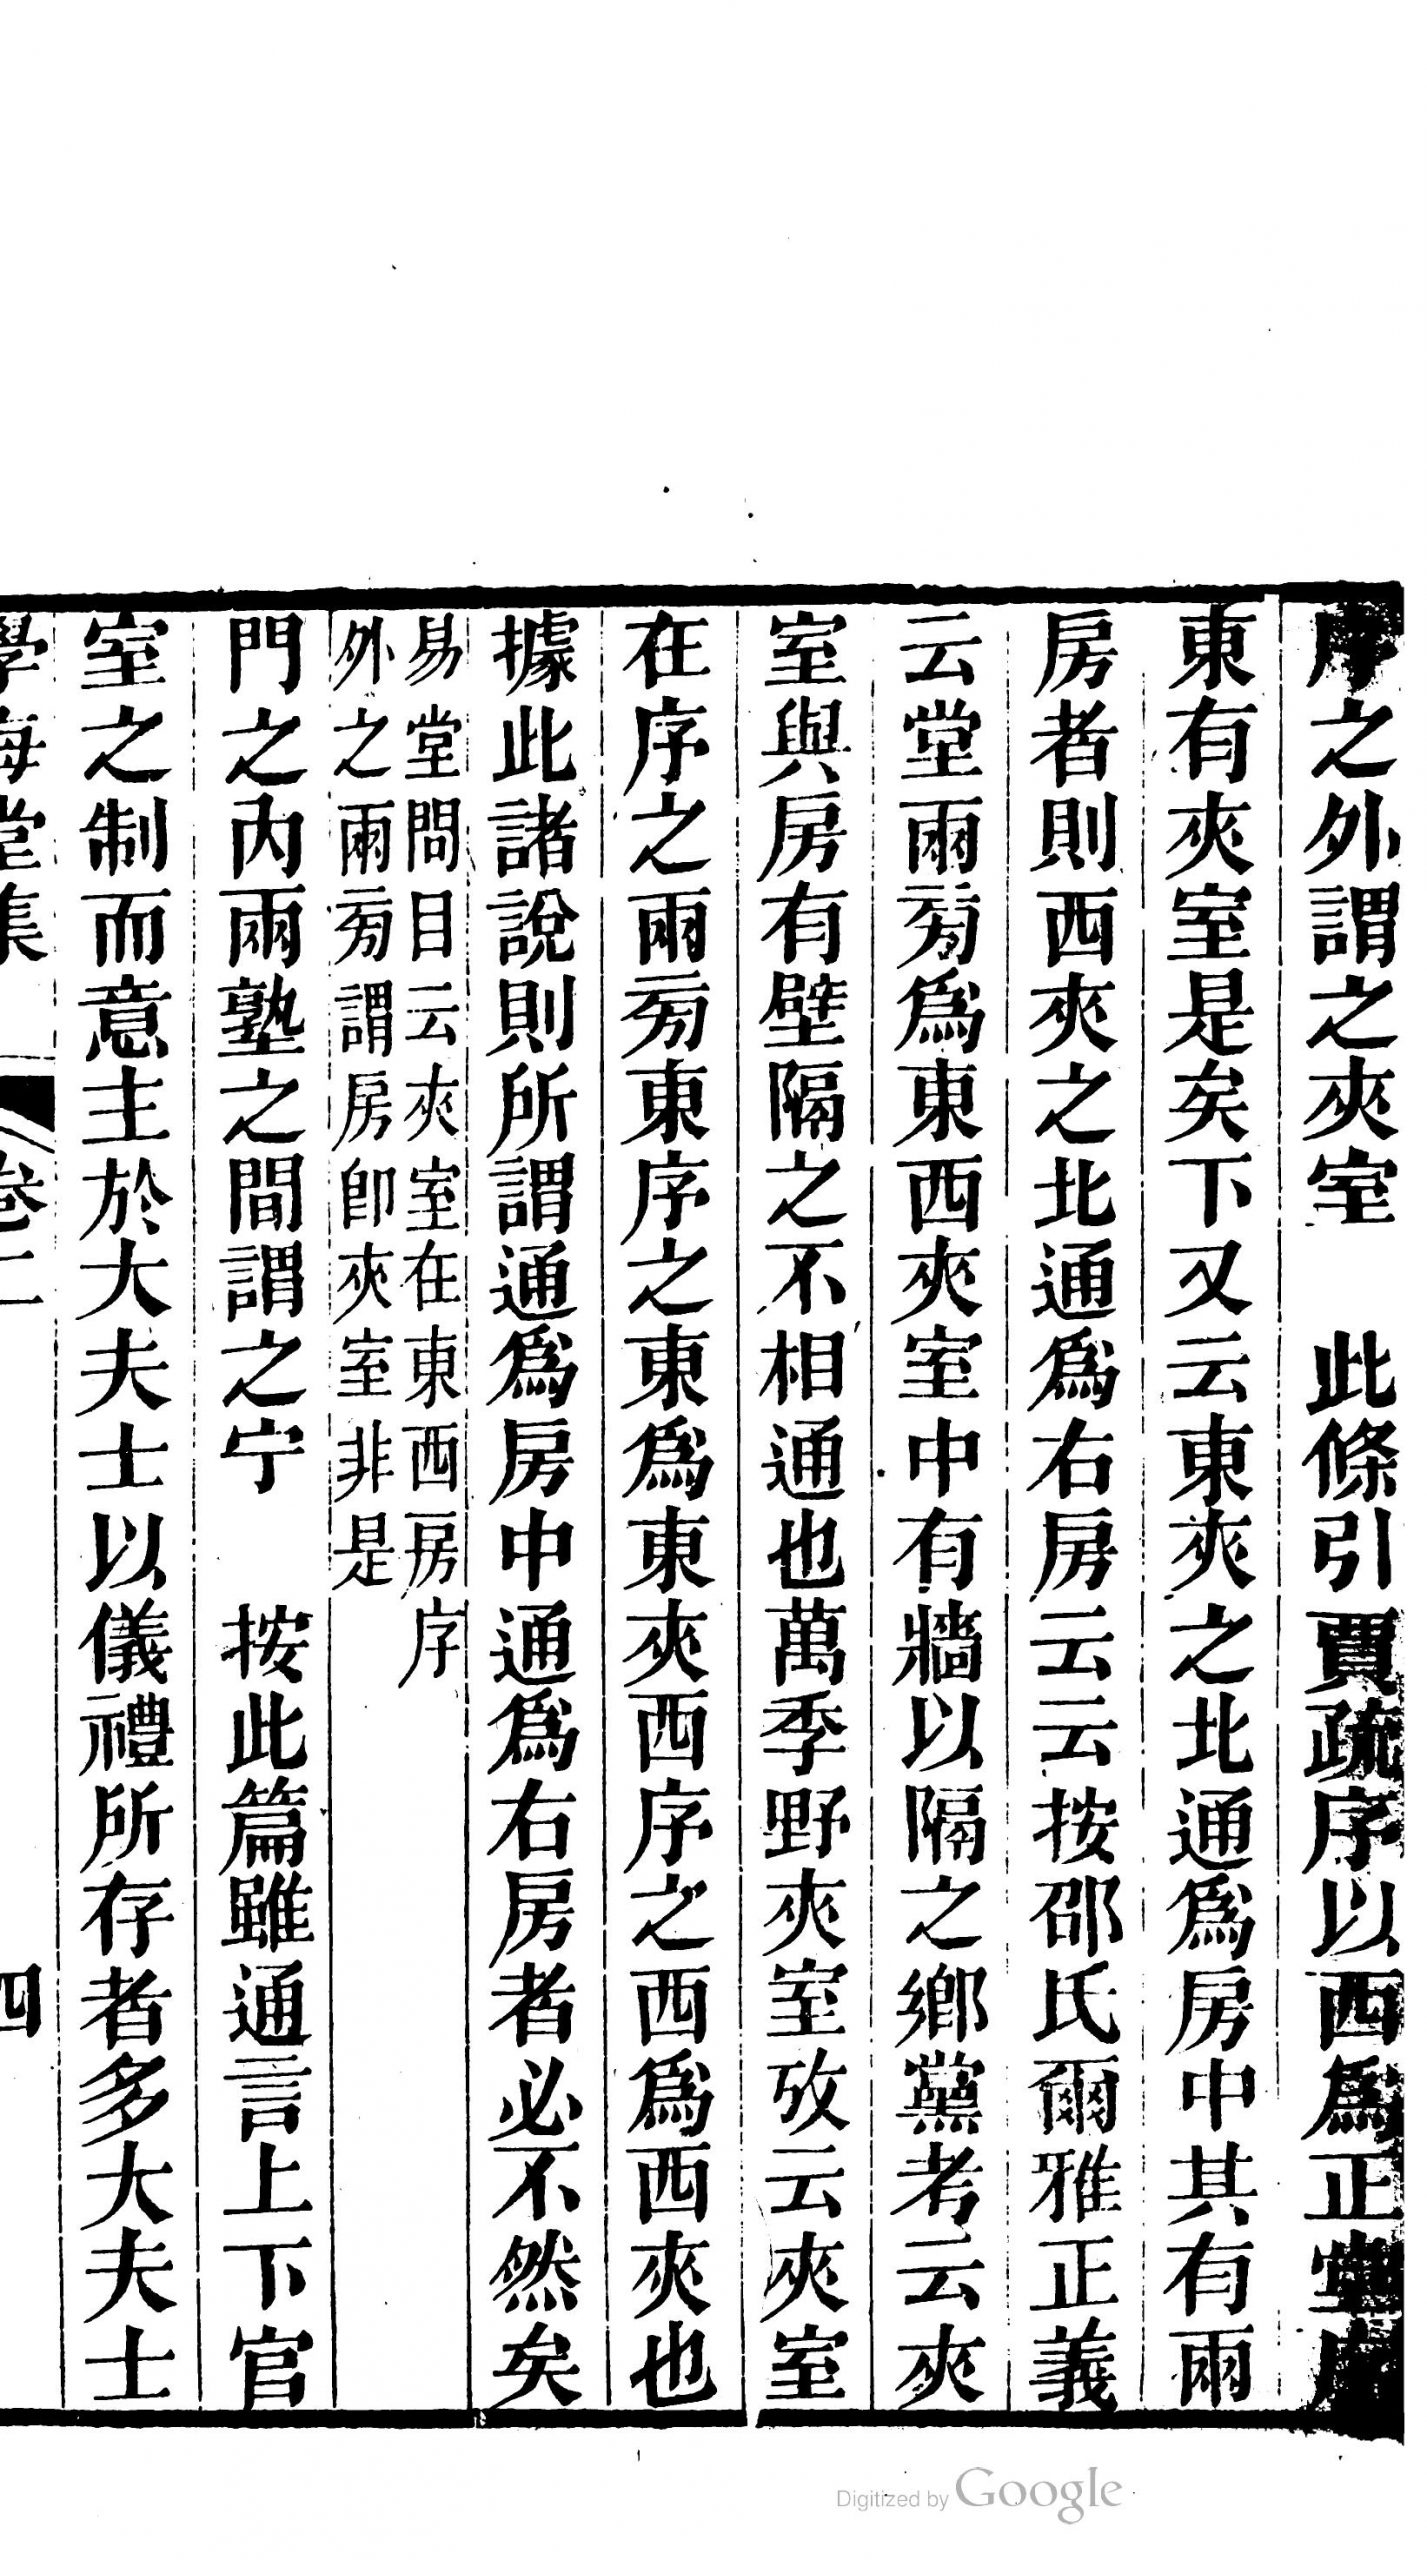 序之外謂之夾室　此條引賈疏序以西爲正堂序
東有夾室是矣下又云東夾之北通爲房中其有兩
房者則西夾之北通爲右房云云按邵氏爾雅正義
云堂兩旁爲東西夾室中有牆以隔之鄉黨考云夾
室與房有壁隔之不相通也萬季野夾室攷云夾室
在序之兩旁東序之東爲東夾西序之西爲西夾也
據此諸說則所謂通爲房中通爲右房者必不然矣
易堂問目云夾室在東西房序
外之兩旁謂房卽夾室非是
門之內兩塾之間謂之宁　按此篇雖通言上下官
室之制而意主於大夫士以儀禮所存者多大夫士
學海堂集　卷二　四
Digitized by Google